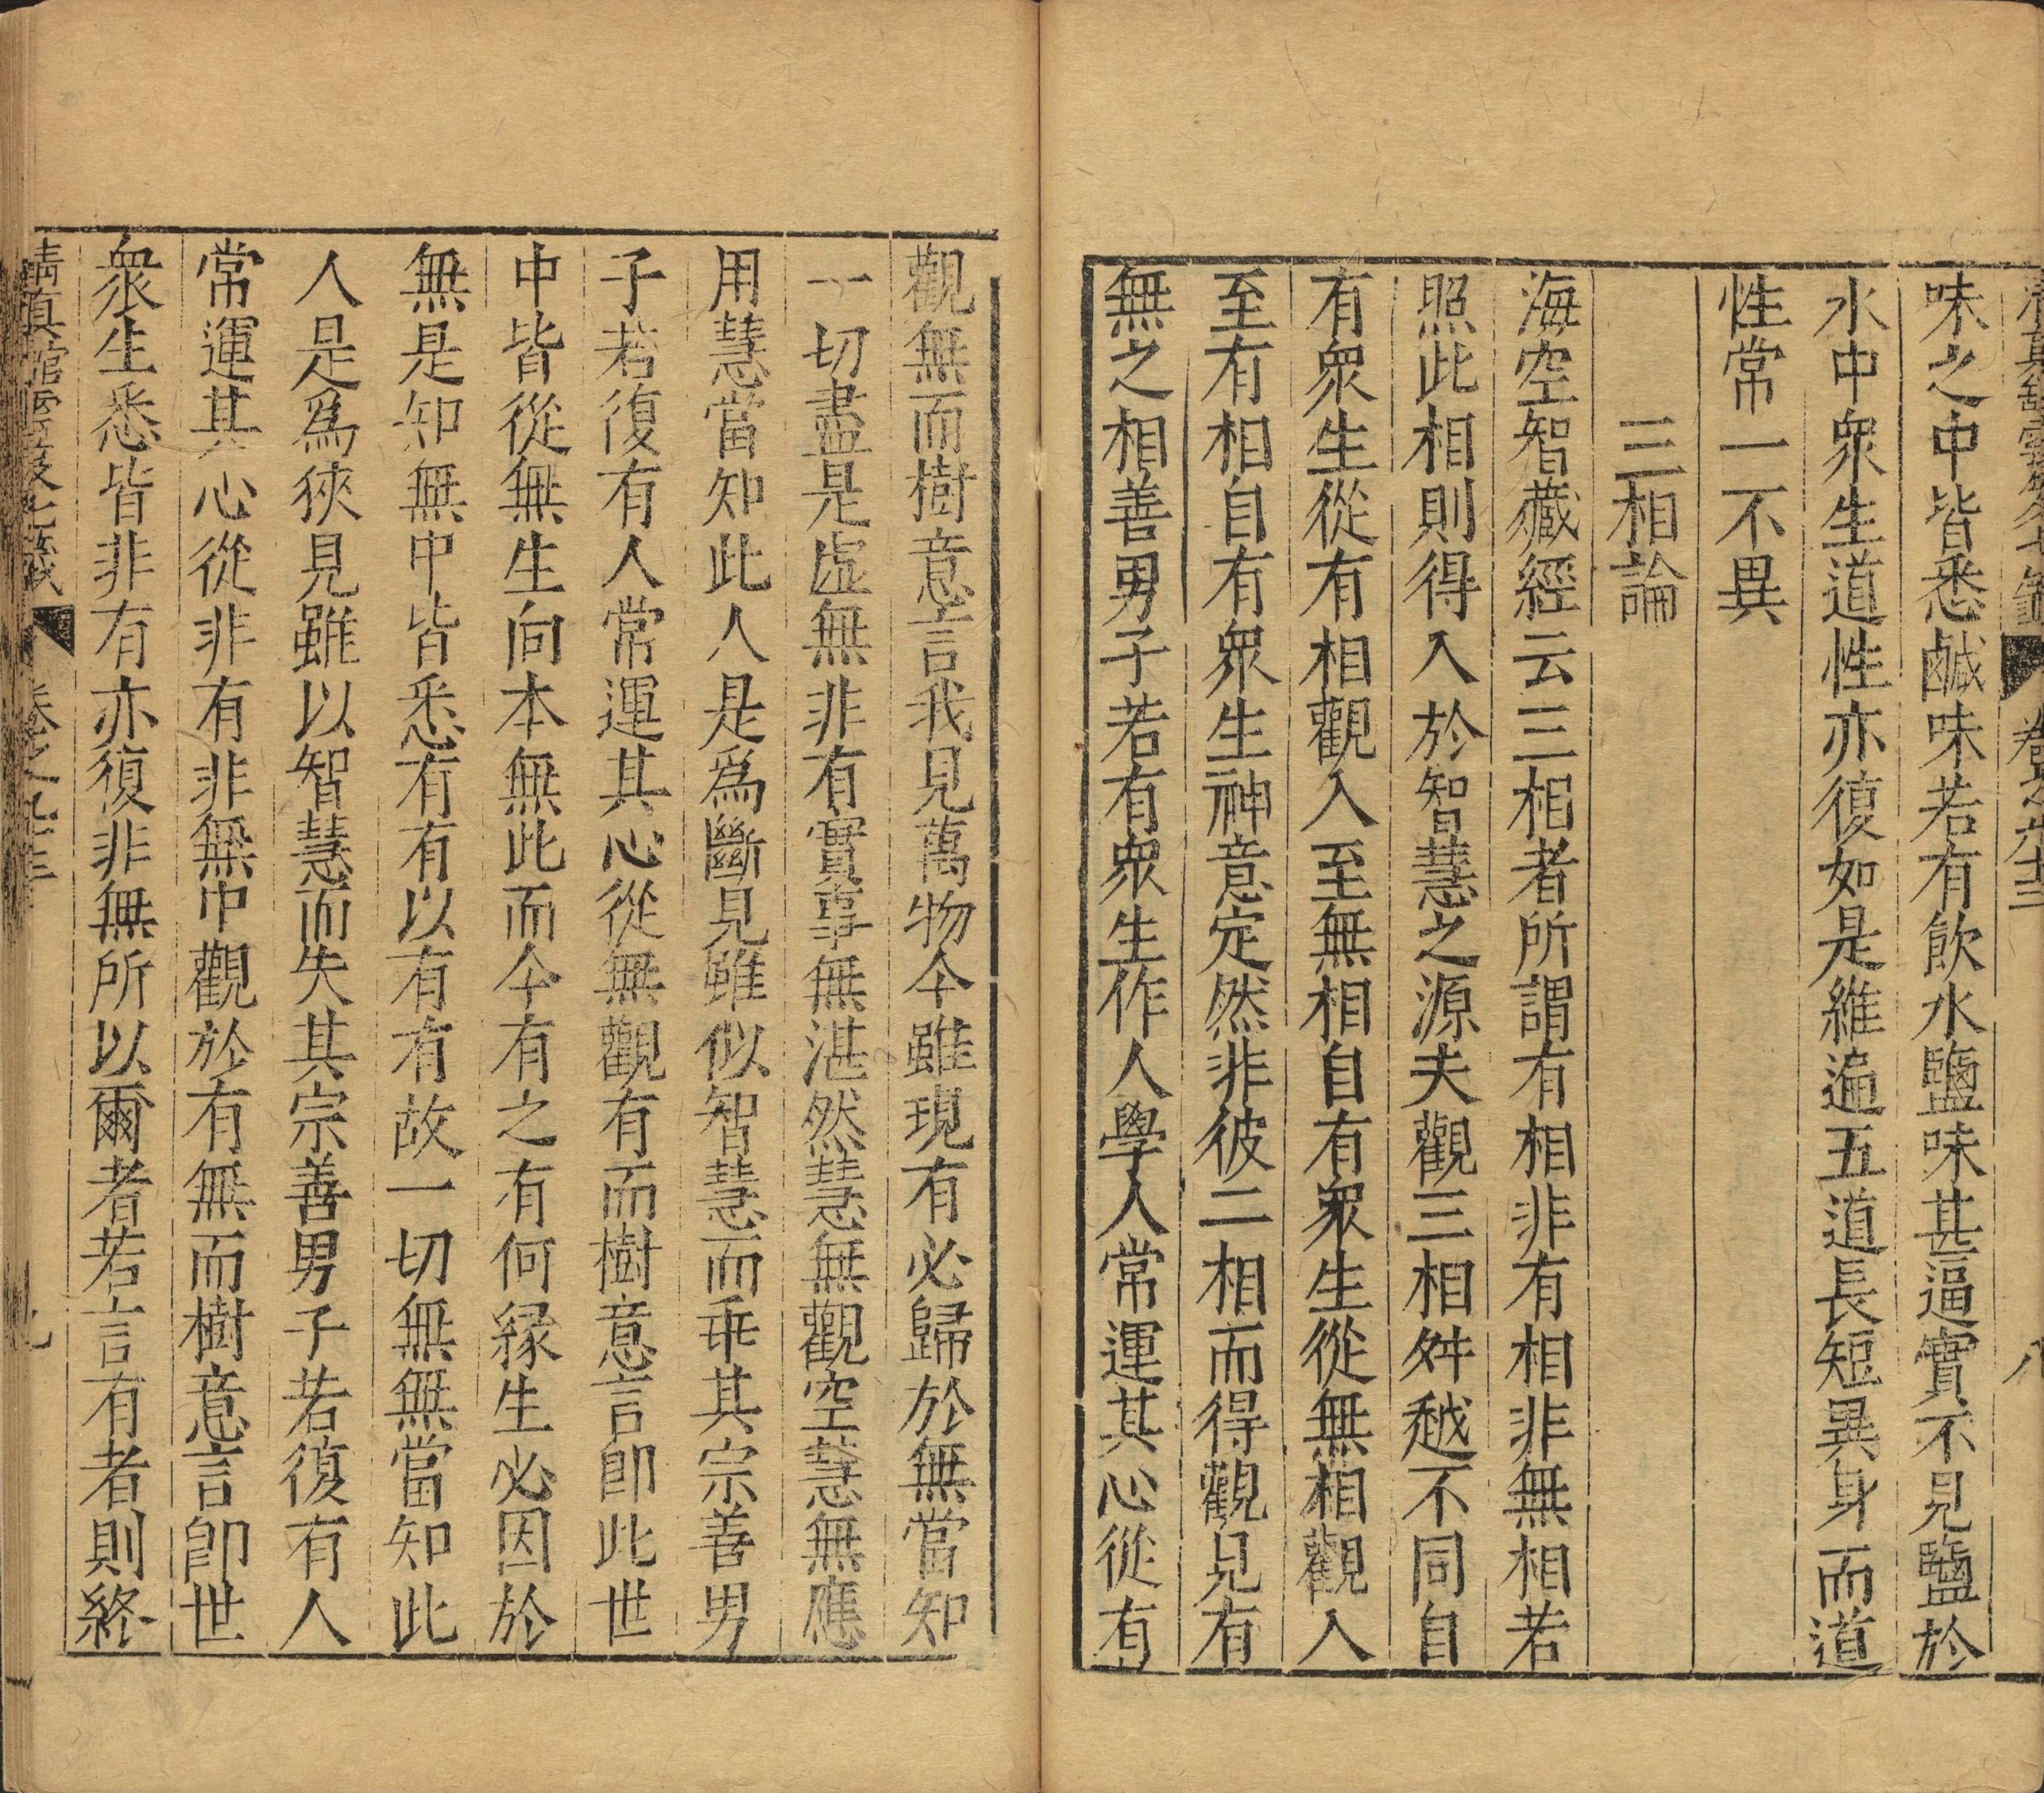 味之中皆悉鹹味若有飲水鹽味甚逼實不見鹽於
水中衆生道性亦復如是維遍五道長短異身而道
性常一不異
三相論
海空智藏經云三相者所謂有相非有相非無相若
照此相則得入於智慧之源夫觀三相舛越不同自
有衆生從有相觀入至無相自有衆生從無相觀入
至有相自有衆生神意定然非彼二相而得觀見有
無之相善男子若有衆生作人學人常運其心從有
觀無而樹意言我見萬物今雖現有必歸於無當知
一切盡是虛無非有實事無湛然慧無觀空慧無應
用慧當知此人是爲斷見雖似智慧而乖其宗善男
子若復有人常運其心從無觀有而樹意言卽此世
中皆從無生向本無此而今有之有何緣生必因於
無是知無中皆悉有有以有有故一切無無當知此
人是爲狹見雖以智慧而失其宗善男子若復有人
常運其心從非有非無中觀於有無而樹意言卽世
衆生悉皆非有亦復非無所以爾者若言有者則終
清真館雲笈七籤 卷之九十三 九